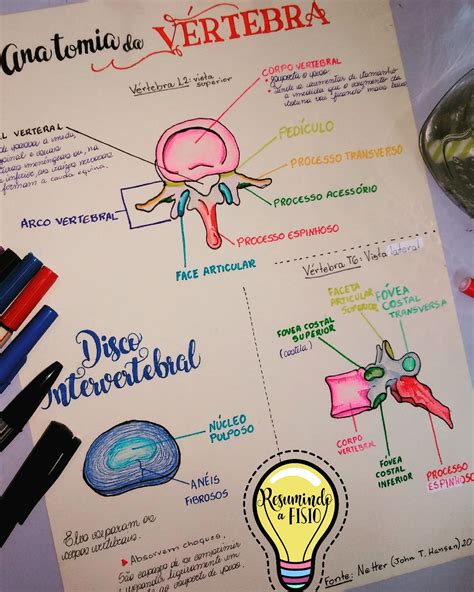 Anatomia da VÉRTEBRA
Vértebra L2: vista
superior
CORPO VERTEBRAL
suporta o peso
tende a aumentar de tamanho
a medida que o segmento da
coluna vai ficando mais baixo
VERTERAL
PEDÍCULO
PROCESSO TRANSVERSO
PROCESSO ACESSÓRIO
ARCO VERTEBRAL
PROCESSO ESPINHOSO
FACE ARTICULAR
formam a cauda equina.
Vértebra T6: Vista lateral
FACETA
ARTICULAR
SUPERIOR
FÓVEA
COSTAL
TRANSVERSA
FOVEA COSTAL
SUPERIOR
(costela)
CORPO
VERTEBRAL
FOVEA
COSTAL
INFERIOR
PROCESSO
ESPINHOSO
Disco
Intervertebral
NÚCLEO
PULPOSO
ANÉIS
FIBROSOS
Eles separam os
corpos vertebrais.
Absorvem choques,
São capazes de se comprimir
Resumindo
a FISIO
Fonte: Netter (John T. Hansen) 20